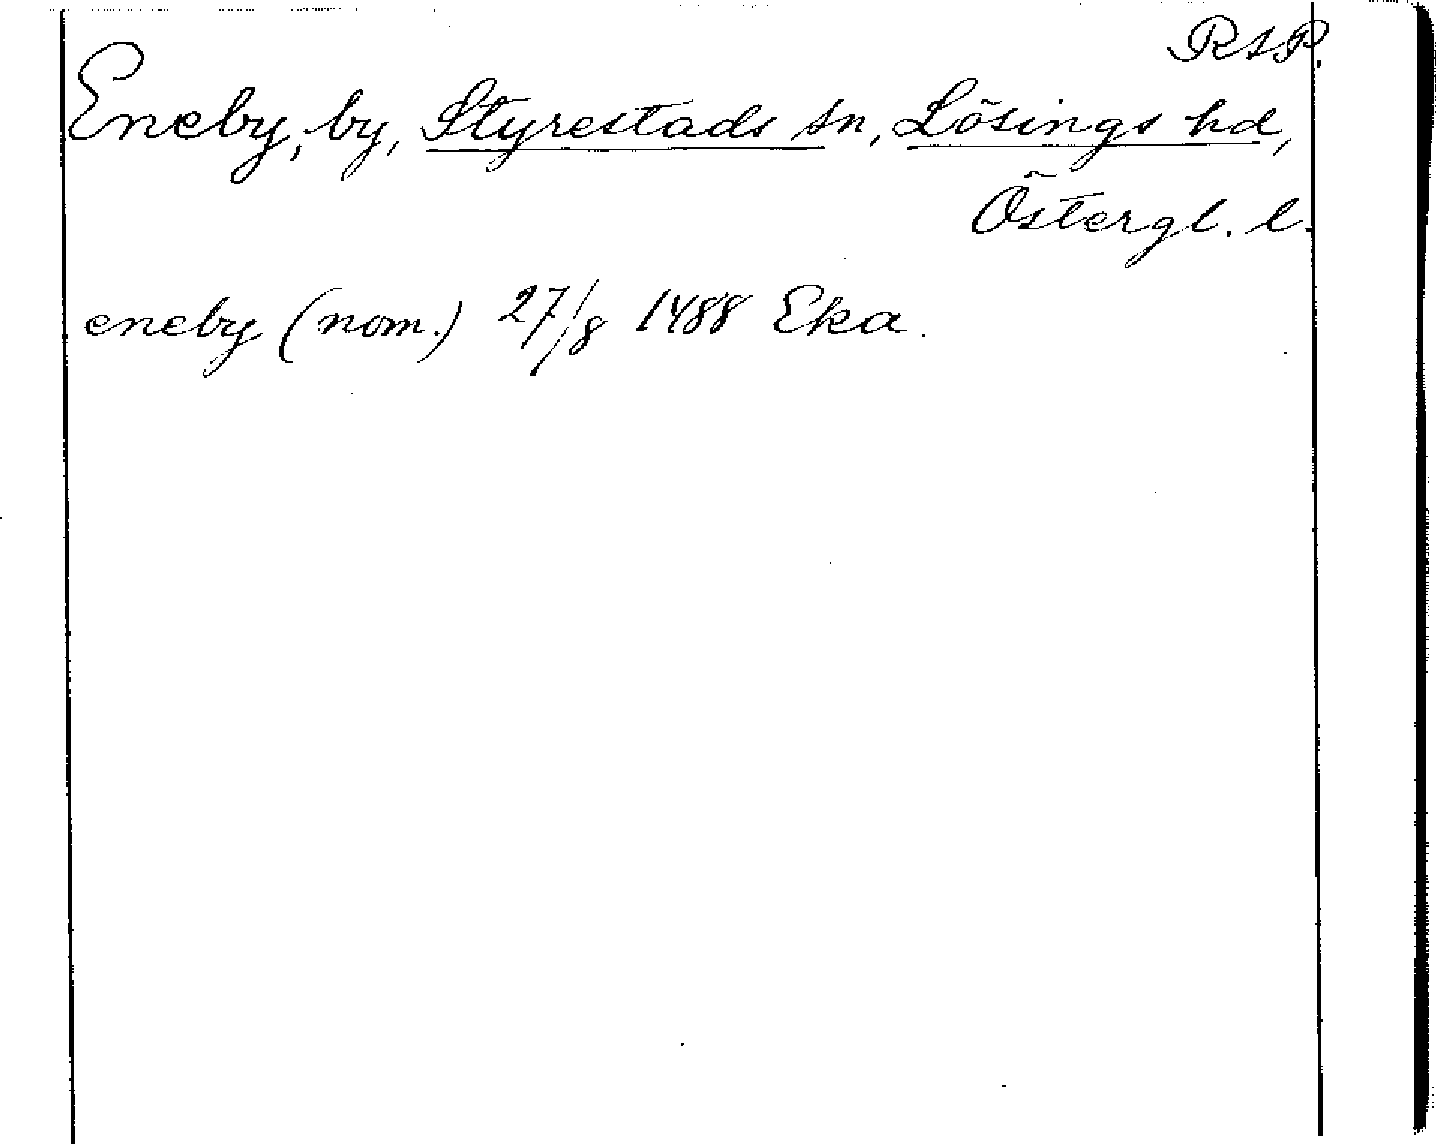 RAP.
Eneby, by, Styrestads sn, Lösings hd,
Östergl. l.
eneby (nom.) 27/8 1488 Eka.